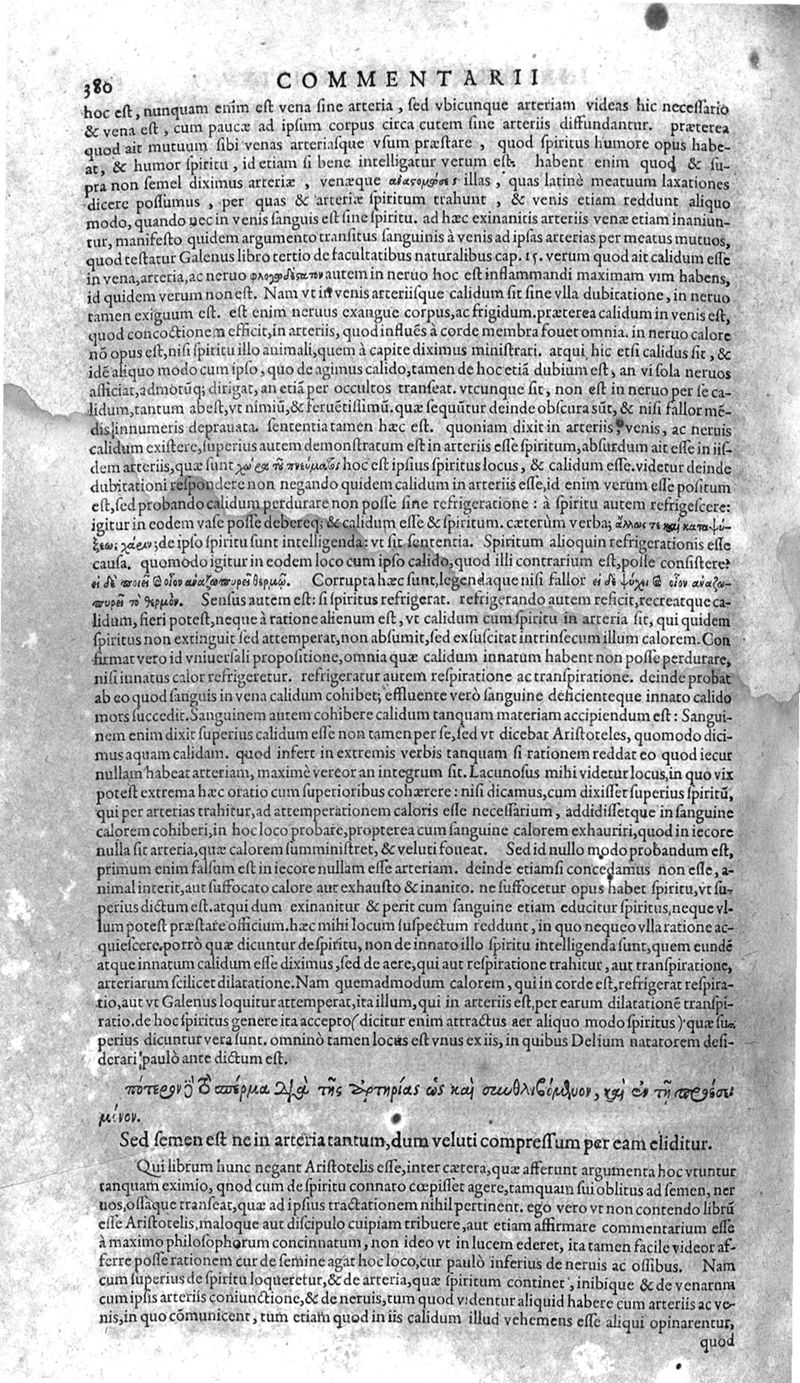 380 COMMENTARII
hoc est, nunquam enim est vena sine arteria, sed vbicunque arteriam videas hic necessario
& vena est, cum paucæ ad ipsum corpus circa cutem sine arteriis diffundantur. præterea
quod ait mutuum sibi venas arteriasque vsum præstare, quod spiritus humore opus habe-
at, & humor spiritu, id etiam si bene intelligatur verum est. habent enim quod & su-
pra non semel diximus arteriæ, venæque illas, quas latinè meatuum laxationes
dicere possumus, per quas & arteriæ spiritum trahunt, & venis etiam reddunt aliquo
modo, quando nec in venis sanguis est sine spiritu. ad hæc exinanitis arteriis venæ etiam inaniun-
tur, manifesto quidem argumento transitus sanguinis à venis ad ipsas arterias per meatus mutuos,
quod testatur Galenus libro tertio de facultatibus naturalibus cap. 15. verum quod ait calidum esse
in vena, arteria, ac neruo autem in neruo hoc est inflammandi maximam vim habens,
id quidem verum non est. Nam vt in venis arteriisque calidum sit sine vlla dubitatione, in neruo
tamen exiguum est. est enim neruus exangue corpus, ac frigidum. præterea calidum in venis est,
quod concoctionem efficit, in arteriis, quod influẽs à corde membra fouet omnia. in neruo calore
nõ opus est, nisi spiritu illo animali, quem à capite diximus ministrari. atqui hic etsi calidus sit, &
idẽ aliquo modo cum ipso, quo de agimus calido, tamen de hoc etiã dubium est, an vi sola neruos
afficiat, admotũq; dirigat, an etiã per occultos transeat. vtcunque sit, non est in neruo per se ca-
lidum, tantum abest, vt nimiũ, & feruẽtissimũ. quæ sequũtur deinde obscura sũt, & nisi fallor mẽ-
dis innumeris deprauata. sententia tamen hæc est. quoniam dixit in arteriis, venis, ac neruis
calidum existere, superius autem demonstratum est in arteriis esse spiritum, absurdum ait esse in iis-
dem arteriis, quæ sunt χώρα τοῦ πνεύματος hoc est ipsius spiritus locus, & calidum esse. videtur deinde
dubitationi respondere non negando quidem calidum in arteriis esse, id enim verum esse positum
est, sed probando calidum perdurare non posse sine refrigeratione: à spiritu autem refrigescere:
igitur in eodem vase posse debereq; & calidum esse & spiritum. cæterùm verba; ἄλλως τε καὶ καταψύ-
ξεως χάριν; de ipso spiritu sunt intelligenda: vt sit sententia. Spiritum alioquin refrigerationis esse
causa. quomodo igitur in eodem loco cum ipso calido, quod illi contrarium est, posse consistere?
εἰ δὲ ποιεῖ οἷον ἀναζωπυρεῖ θερμῷ. Corrupta hæc sunt, legendaque nisi fallor εἰ δὲ ψύχει οἷον ἀναζω-
πυρεῖ τὸ θερμόν. Sensus autem est: si spiritus refrigerat. refrigerando autem reficit, recreatque ca-
lidum, fieri potest, neque à ratione alienum est, vt calidum cum spiritu in arteria sit, qui quidem
spiritus non extinguit sed attemperat, non absumit, sed exsuscitat intrinsecum illum calorem. Con
firmat vero id vniuersali propositione, omnia quæ calidum innatum habent non posse perdurare,
nisi innatus calor refrigeretur. refrigeratur autem respiratione ac transpiratione. deinde probat
ab eo quod sanguis in vena calidum cohibet; effluente verò sanguine deficienteque innato calido
mors succedit. Sanguinem autem cohibere calidum tanquam materiam accipiendum est: Sangui-
nem enim dixit superius calidum esse non tamen per se, sed vt dicebat Aristoteles, quomodo dici-
mus aquam calidam. quod infert in extremis verbis tanquam si rationem reddat eo quod iecur
nullam habeat arteriam, maximè vereor an integrum sit. Lacunosus mihi videtur locus, in quo vix
potest extrema hæc oratio cum superioribus cohærere: nisi dicamus, cum dixisset superius spiritũ,
qui per arterias trahitur, ad attemperationem caloris esse necessarium, addidissetque in sanguine
calorem cohiberi, in hoc loco probare, propterea cum sanguine calorem exhauriri, quod in iecore
nulla sit arteria, quæ calorem sumministret, & veluti foueat. Sed id nullo modo probandum est,
primum enim falsum est in iecore nullam esse arteriam. deinde etiamsi concedamus non esse, a-
nimal interit, aut suffocato calore aut exhausto & inanito. ne suffocetur opus habet spiritu, vt su-
perius dictum est. atqui dum exinanitur & perit cum sanguine etiam educitur spiritus, neque vl-
lum potest præstare officium. hæc mihi locum suspectum reddunt, in quo nequeo vlla ratione ac-
quiescere. porrò quæ dicuntur de spiritu, non de innato illo spiritu intelligenda sunt, quem eundẽ
atque innatum calidum esse diximus, sed de aere, qui aut respiratione trahitur, aut transpiratione,
arteriarum scilicet dilatatione. Nam quemadmodum calorem, qui in corde est, refrigerat respira-
tio, aut vt Galenus loquitur attemperat, ita illum, qui in arteriis est, per earum dilatationẽ transpi-
ratio. de hoc spiritus genere ita accepto (dicitur enim attractus aer aliquo modo spiritus) quæ su-
perius dicuntur vera sunt. omninò tamen locus est vnus ex iis, in quibus Delium natatorem desi-
derari paulò ante dictum est.
πότερον τὸ σπέρμα διὰ τῆς ἀρτηρίας ὡς καὶ συνθλιβόμενον, καὶ ἐν τῇ προέσει
μόνον.
Sed semen est ne in arteria tantum, dum veluti compressum per eam eliditur.
Qui librum hunc negant Aristotelis esse, inter cætera, quæ afferunt argumenta hoc vtuntur
tanquam eximio, quod cum de spiritu connato cœpisset agere, tamquam sui oblitus ad semen, ner
uos, ossaque transeat, quæ ad ipsius tractationem nihil pertinent. ego vero vt non contendo librũ
esse Aristotelis, maloque aut discipulo cuipiam tribuere, aut etiam affirmare commentarium esse
à maximo philosophorum concinnatum, non ideo vt in lucem ederet, ita tamen facile videor af-
ferre posse rationem cur de semine agat hoc loco, cur paulò inferius de neruis ac ossibus. Nam
cum superius de spiritu loqueretur, & de arteria, quæ spiritum continet, inibique & de venarum
cum ipsis arteriis coniunctione, & de neruis, tum quod videntur aliquid habere cum arteriis ac ve-
nis, in quo cõmunicent, tum etiam quod in iis calidum illud vehemens esse aliqui opinarentur,
quod